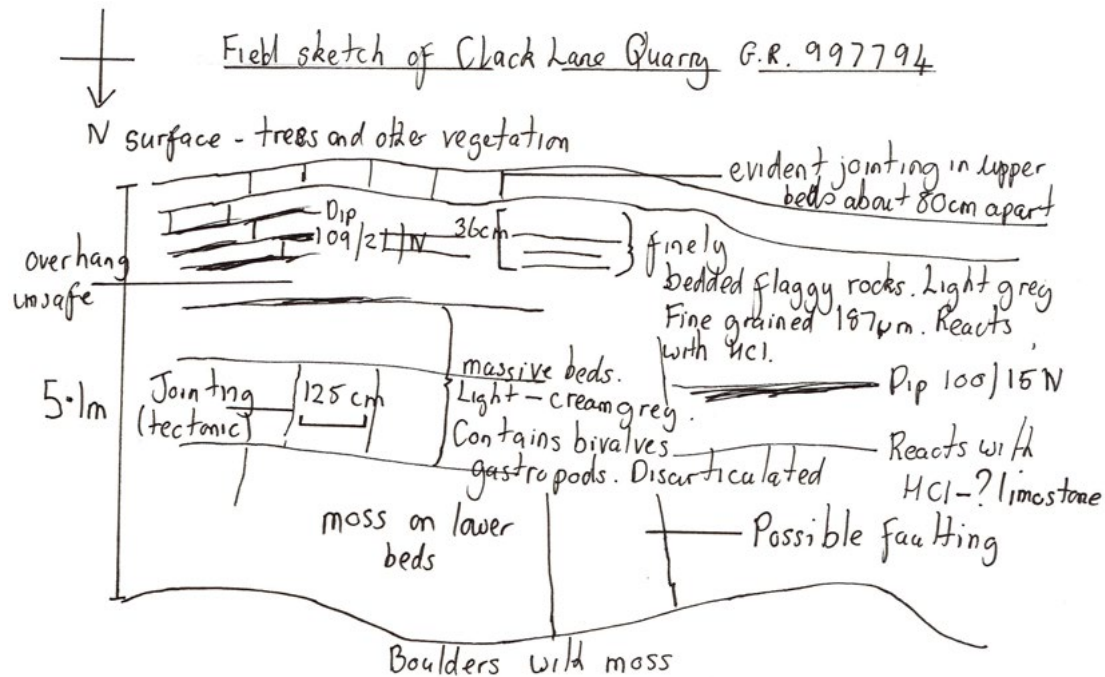 Field sketch of Clack Lane Quarry G.R. 997794
N
surface - trees and other vegetation
evident jointing in upper
beds about 80cm apart
Dip
109/21 N
36cm
finely
bedded flaggy rocks. Light grey
Fine grained 187µm. Reacts
with HCl.
overhang
unsafe
5.1m
Jointing
(tectonic)
125 cm
massive beds.
Light - cream grey.
Contains bivalves
gastropods. Disarticulated
Dip 100/15 N
Reacts with
HCl - ? limestone
moss on lower
beds
Possible faulting
Boulders with moss